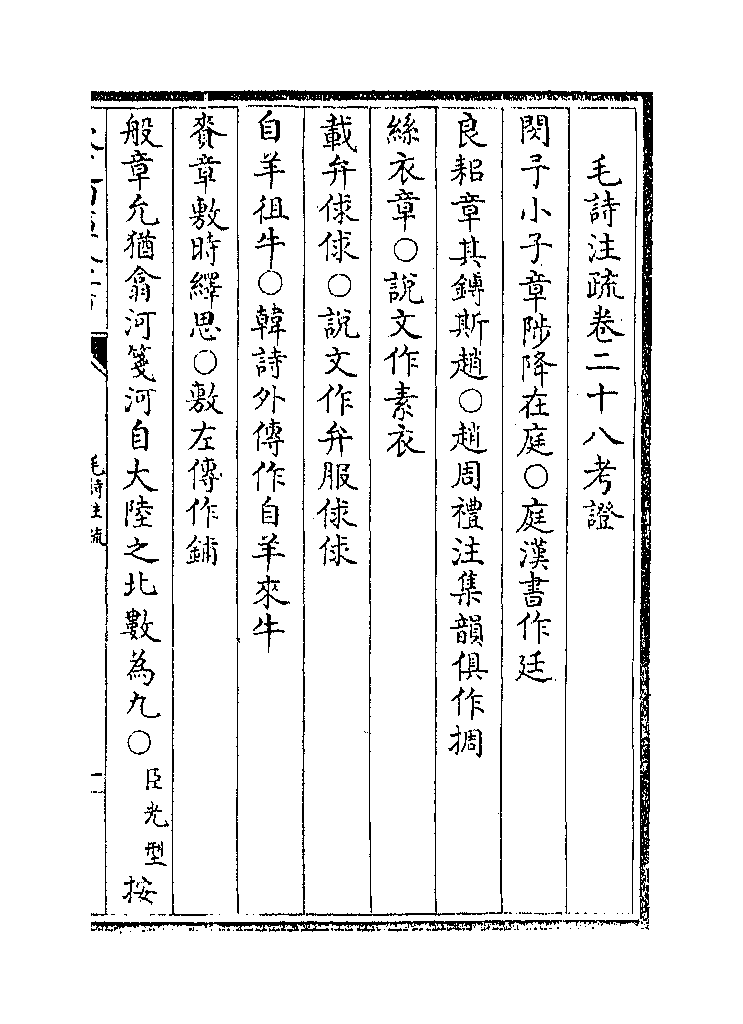 毛詩注疏卷二十八考證
閔予小子章陟降在庭○庭漢書作廷
良耜章其鎛斯趙○趙周禮注集韻俱作挶
絲衣章○說文作素衣
載弁俅俅○說文作弁服俅俅
自羊徂牛○韓詩外傳作自羊來牛
賚章敷時繹思○敷左傳作鋪
般章允猶翕河箋河自大陸之北敷為九○臣光型按
毛詩注疏